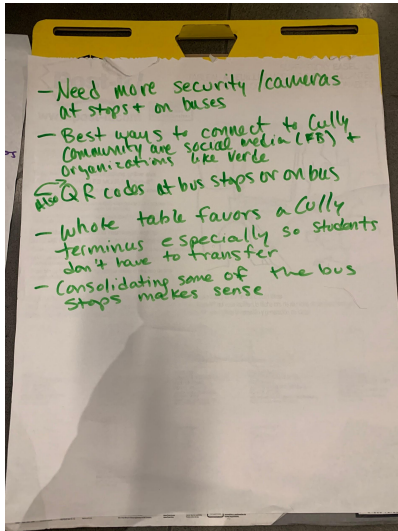 - Need more security/cameras
at stops + on buses
- Best ways to connect to Cully
Community are social media (FB) +
organizations like Verde
Also QR codes at bus stops or on bus
- Whole table favors a Cully
terminus especially so students
don't have to transfer
- Consolidating some of the bus
stops makes sense